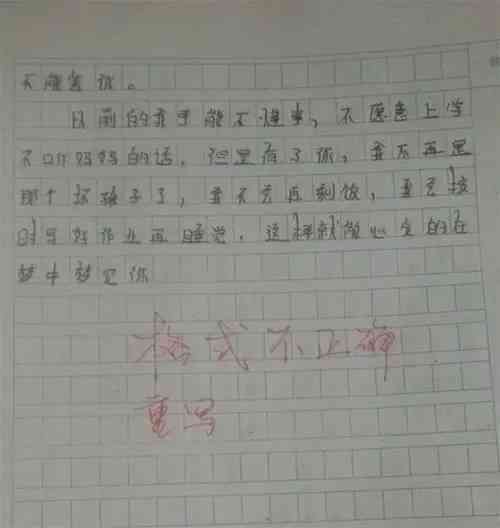 不能害你。
以前的我可能不懂事，不愿意上学
不听妈妈的话，但是有了你，我不再是
那个坏孩子了，我不会再剩饭，我会按
时写好作业再睡觉，这样就能心安的在
梦中梦见你
格式不正确
重写